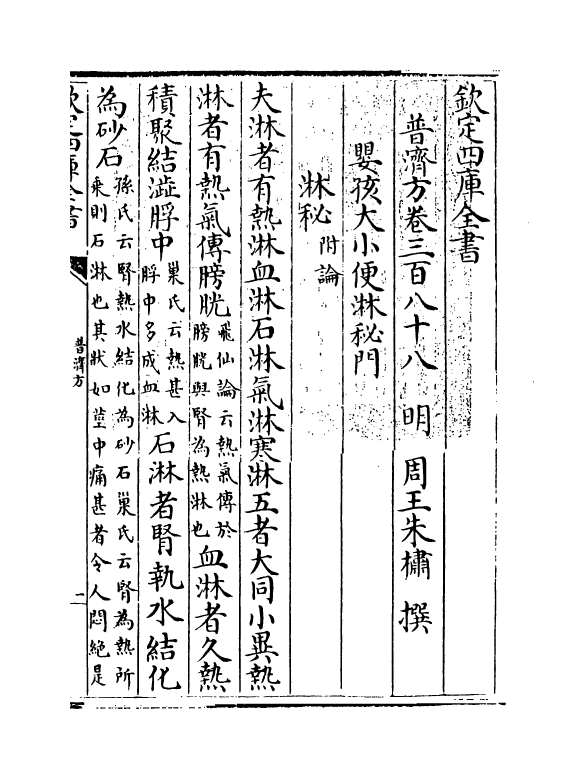 欽定四庫全書
普濟方卷三百八十八 明 周王朱橚 撰
嬰孩大小便淋秘門
淋秘附論
夫淋者有熱淋血淋石淋氣淋寒淋五者大同小異熱
淋者有熱氣傳膀胱飛仙論云熱氣傳於膀胱與腎為熱淋也血淋者久熱
積聚結澁脬中巢氏云熱甚入脬中多成血淋石淋者腎執水結化
為砂石孫氏云腎熱水結化為砂石巢氏云腎為熱所乘則石淋也其狀如莖中痛甚者令人悶絶是
欽定四庫全書
普濟方